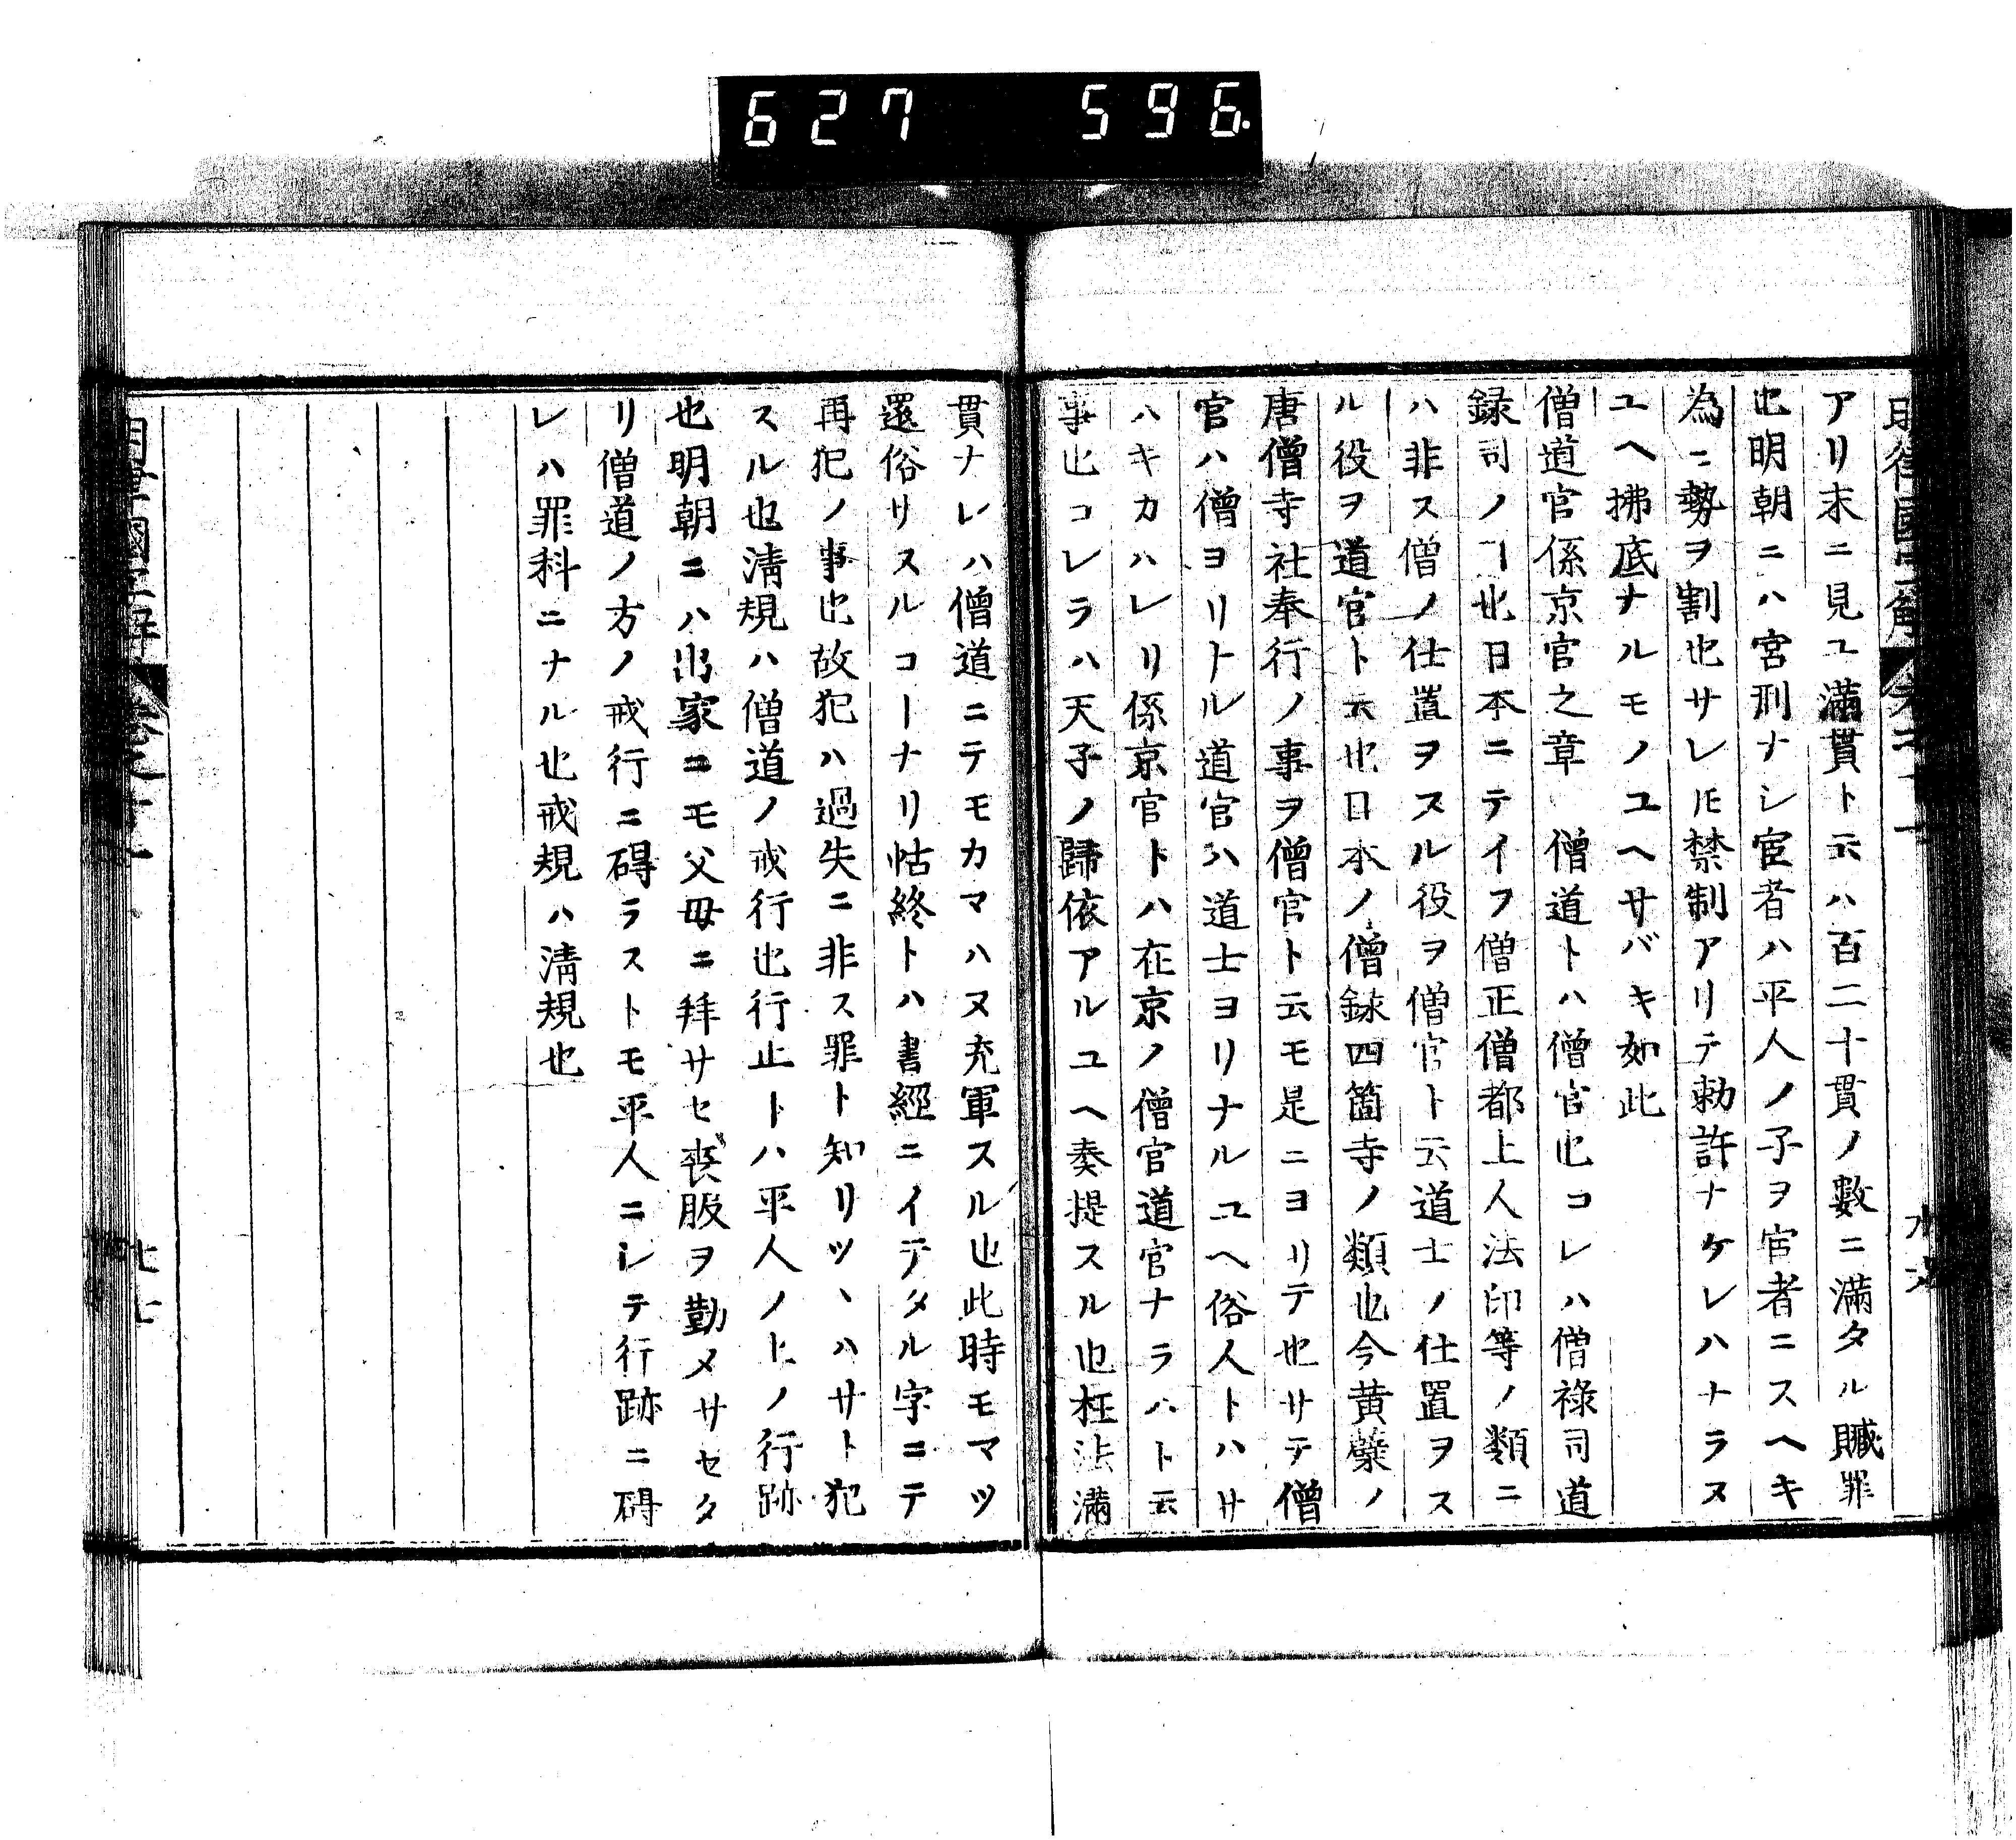 627 596
アリ末ニ見ユ滿貫ト云ハ百二十貫ノ數ニ滿タル贓罪
也明朝ニハ宮刑ナシ宦者ハ平人ノ子ヲ宦者ニスヘキ
為ニ勢ヲ割也サレ𪜈禁制アリテ勅許ナケレハナラヌ
ユヘ拂底ナルモノユヘサバキ如此
僧道官係京官之章 僧道トハ僧官也コレハ僧祿司道
録司ノヿ也日本ニテイヲ僧正僧都上人法印等ノ類ニ
ハ非ス僧ノ仕置ヲスル役ヲ僧官ト云道士ノ仕置ヲス
ル役ヲ道官ト云也日本ノ僧録四箇寺ノ類也今黄蘗ノ
唐僧寺社奉行ノ事ヲ僧官ト云モ是ニヨリテ也サテ僧
官ハ僧ヨリトル道官ハ道士ヨリナルユヘ俗人トハサ
ハキカハレリ係京官トハ在京ノ僧官道官ナラハト云
事也コレラハ天子ノ歸依アルユヘ奏提スル也枉法滿
貫ナレハ僧道ニテモカマハヌ充軍スル也此時モマツ
還俗サスルコーナリ怙終トハ書經ニイテタル字ニテ
再犯ノ事也故犯ハ過失ニ非ス罪ト知リツヽハサト犯
スル也淸規ハ僧道ノ戒行也行止トハ平人ノ上ノ行跡
也明朝ニハ出家ニモ父母ニ拜サセ喪服ヲ勤メサセタ
リ僧道ノ方ノ戒行ニ碍ラストモ平人ニシテ行跡ニ碍
レハ罪科ニナル也戒規ハ淸規也